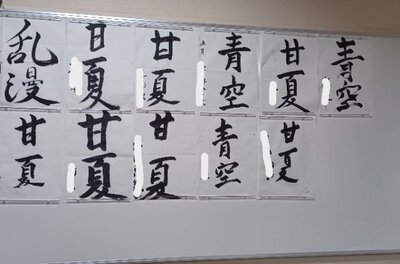 乱漫
甘夏
甘夏
青空
甘夏
青空
甘夏
甘夏
甘夏
青空
甘夏